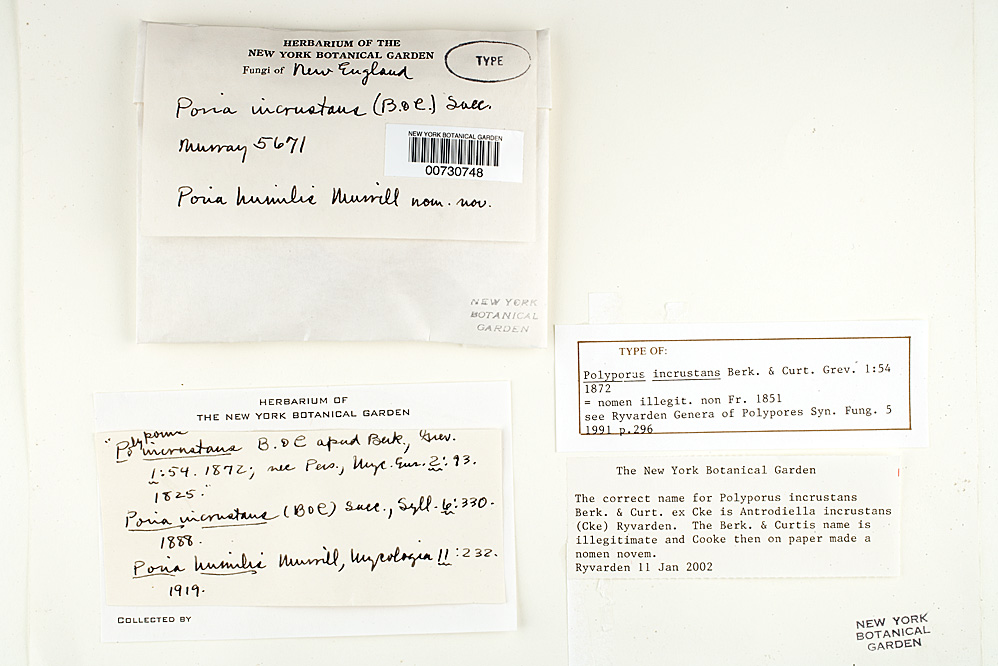 HERBARIUM OF THE
NEW YORK BOTANICAL GARDEN
Fungi of New England
TYPE
Poria incrustans (B. & C.) Sacc.
Murray 5671
NEW YORK BOTANICAL GARDEN
00730748
Poria humilis Murrill nom. nov.
NEW YORK
BOTANICAL
GARDEN
HERBARIUM OF
THE NEW YORK BOTANICAL GARDEN
"Polyporus incrustans B. & C apud Berk., Grev.
1:54. 1872; nec Pers., Myc. Eur. 2: 93.
1825."
Poria incrustans (B & C) Sacc., Syll. 6:330.
1888.
Poria humilis Murrill, Mycologia 11:232.
1919.
COLLECTED BY
TYPE OF:
Polyporus incrustans Berk. & Curt. Grev. 1:54
1872
= nomen illegit. non Fr. 1851
see Ryvarden Genera of Polypores Syn. Fung. 5
1991 p.296
The New York Botanical Garden
The correct name for Polyporus incrustans
Berk. & Curt. ex Cke is Antrodiella incrustans
(Cke) Ryvarden. The Berk. & Curtis name is
illegitimate and Cooke then on paper made a
nomen novem.
Ryvarden 11 Jan 2002
NEW YORK
BOTANICAL
GARDEN